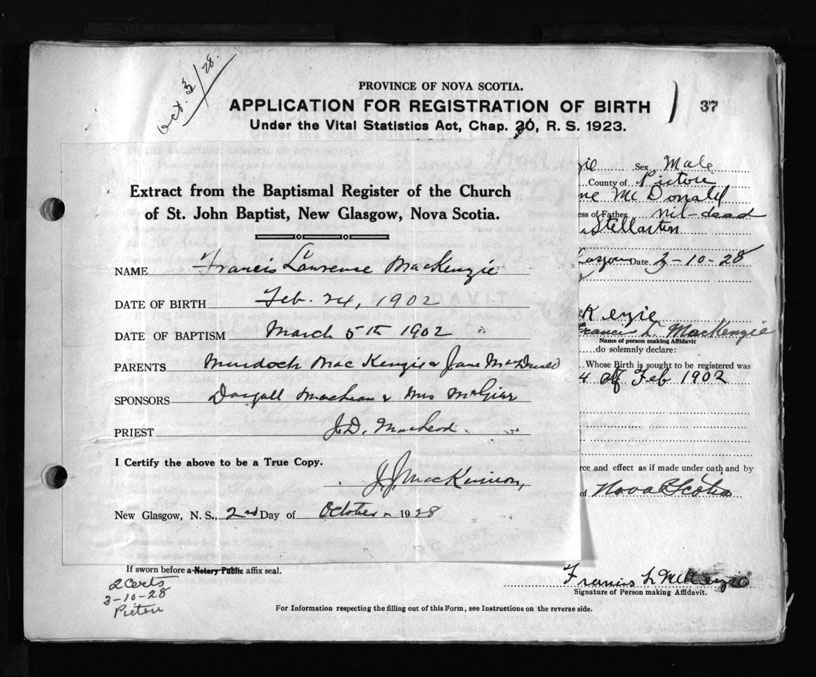 Oct. 3/28.
PROVINCE OF NOVA SCOTIA.
APPLICATION FOR REGISTRATION OF BIRTH
37
Under the Vital Statistics Act, Chap. 30, R. S. 1923.
Extract from the Baptismal Register of the Church
of St. John Baptist, New Glasgow, Nova Scotia.
NAME Francis Lawrence MacKenzie
DATE OF BIRTH Feb. 24, 1902
DATE OF BAPTISM March 5th 1902
PARENTS Murdoch MacKenzie & Jane McDonald
SPONSORS Dougall MacLean & Mrs
PRIEST J. D. MacLeod
I Certify the above to be a True Copy.
J. J. MacKinnon,
New Glasgow, N. S., 2nd Day of October 1928
zie Sex Male
County of Pictou
ne McDonald
ess of Father nil-dead
Stellarton
lasgow Date 3-10-28
Kenzie
Francis L. MacKenzie
Name of person making Affidavit
do solemnly declare:
Whose Birth is sought to be registered was
4 of Feb 1902
rce and effect as if made under oath and by
of Nova Scotia
If sworn before a Notary Public affix seal.
2 Certs
3-10-28
Pictou
Francis L McKenzie
Signature of Person making Affidavit.
For Information respecting the filling out of this Form, see Instructions on the reverse side.